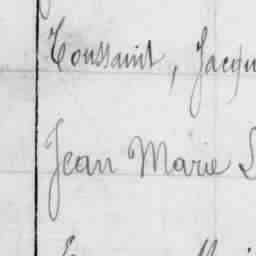 Toussaint, Jacqu
Jean Marie